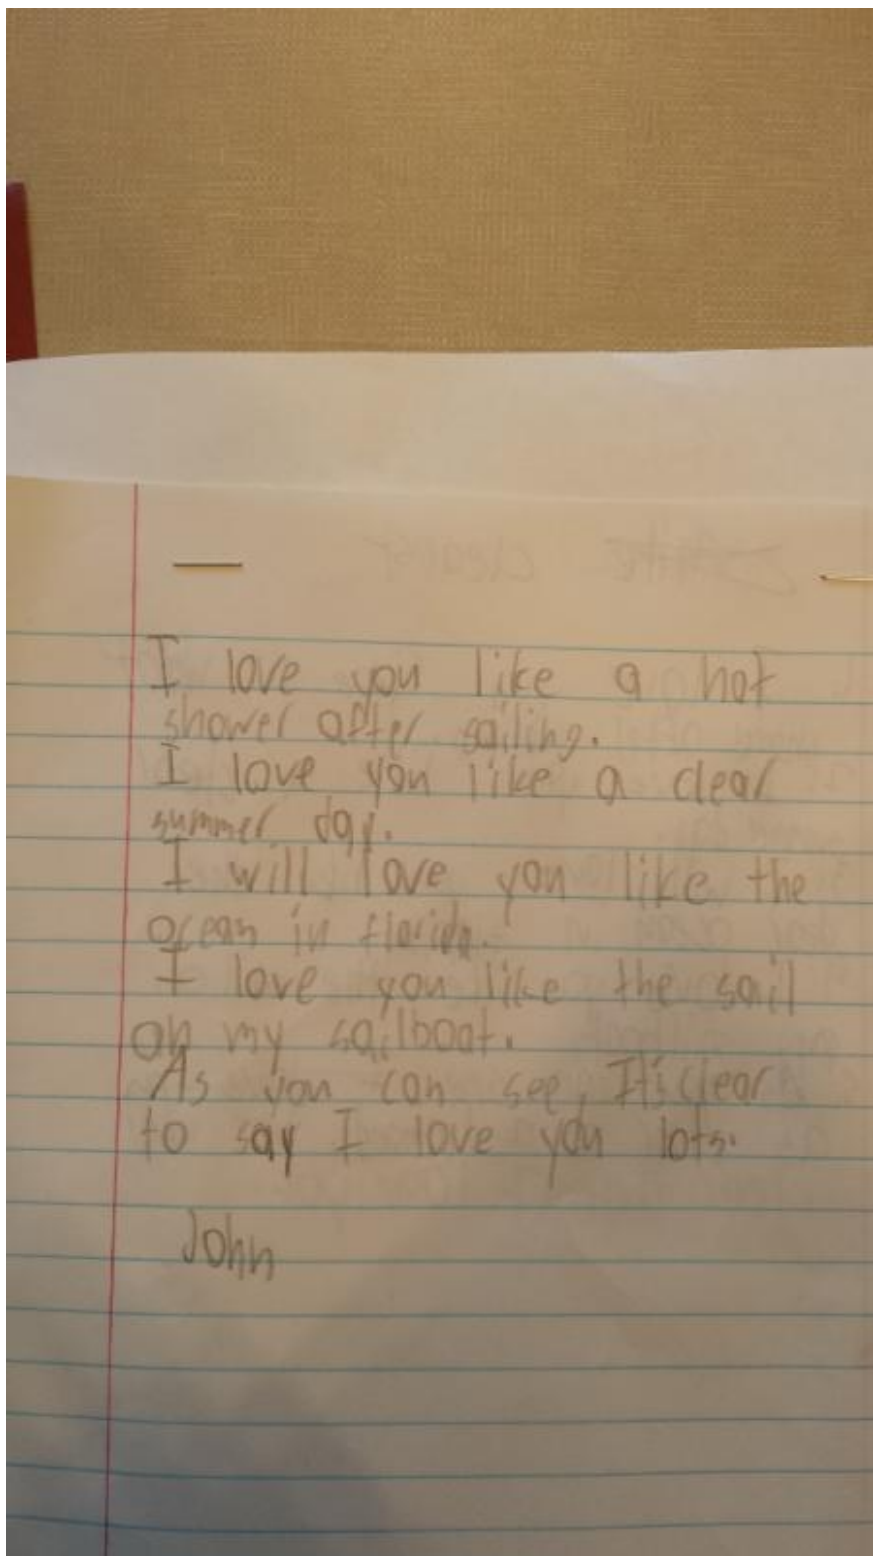 I love you like a hot
shower after sailing.
I love you like a clear
summer day.
I will love you like the
ocean in florida.
I love you like the sail
on my sailboat.
As you can see, It's clear
to say I love you lots.
John